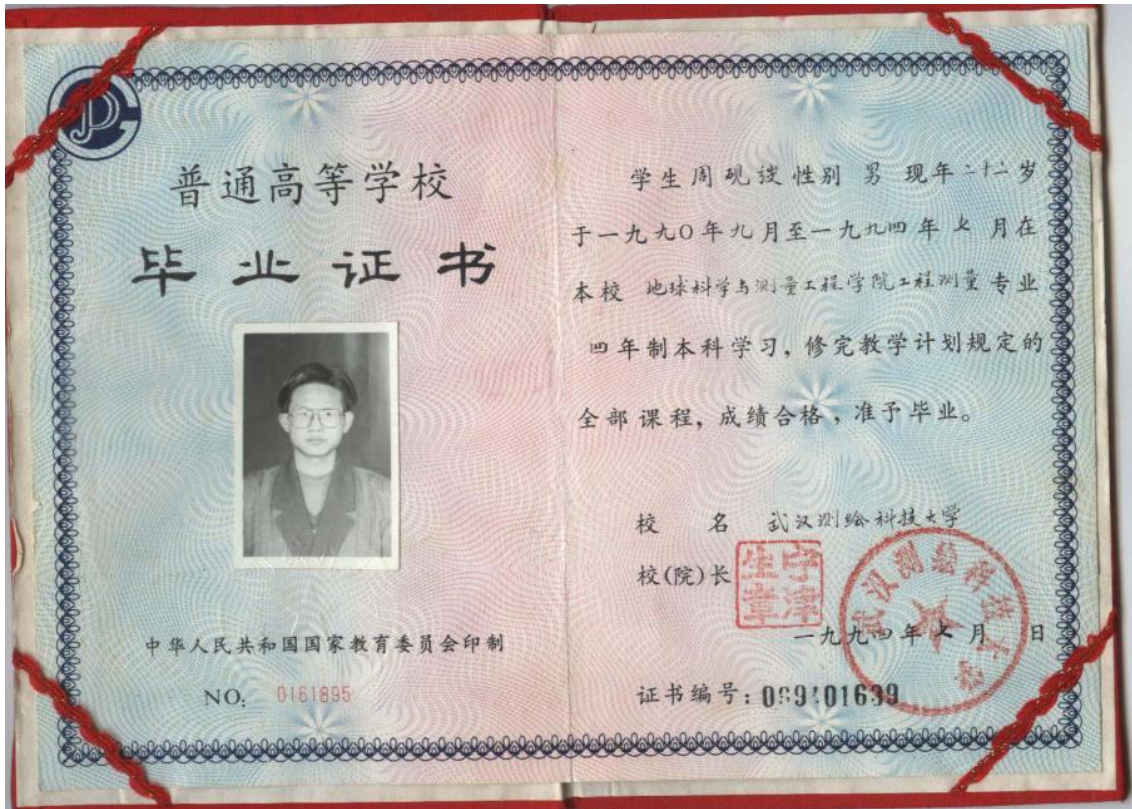 普通高等学校
毕业证书
中华人民共和国国家教育委员会印制
NO: 0161895
学生周砚谈性别 男 现年二十二岁
于一九九〇年九月至一九九四年七月在
本校 地球科学与测量工程学院工程测量专业
四年制本科学习，修完教学计划规定的
全部课程，成绩合格，准予毕业。
校 名 武汉测绘科技大学
校(院)长
宁津生章
武汉测绘科技大学
一九九四年七月 日
证书编号: